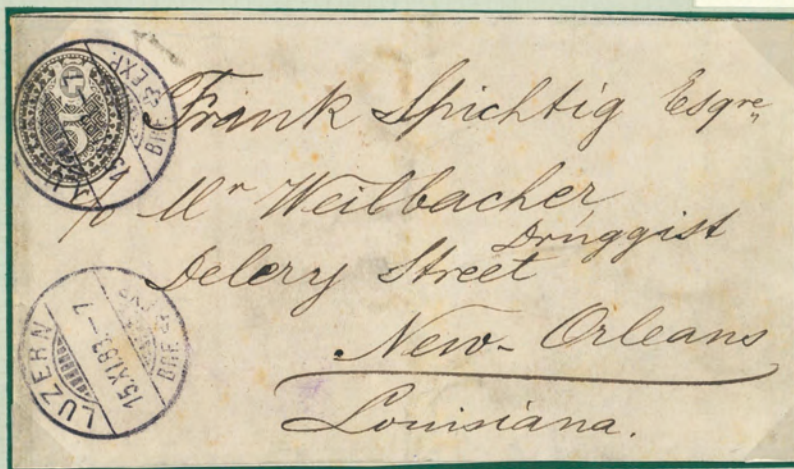 5
EXP.
BRF.
Frank Spichtig Esqre
c/o Mr Weilbacher,
Druggist
Delery Street
New-Orleans
Louisiana.
LUZERN
15.XI.93.-7
BRF. EXP.